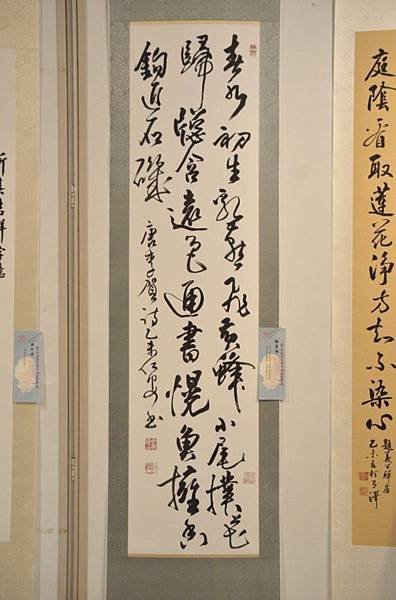 庭陰看取蓮花淨方知不染心
題義公禪房
春水初生乳燕飛黃蜂小尾撲花
歸窗含遠色通書幌魚擁香
鉤近石磯
唐李賀詩乙未書